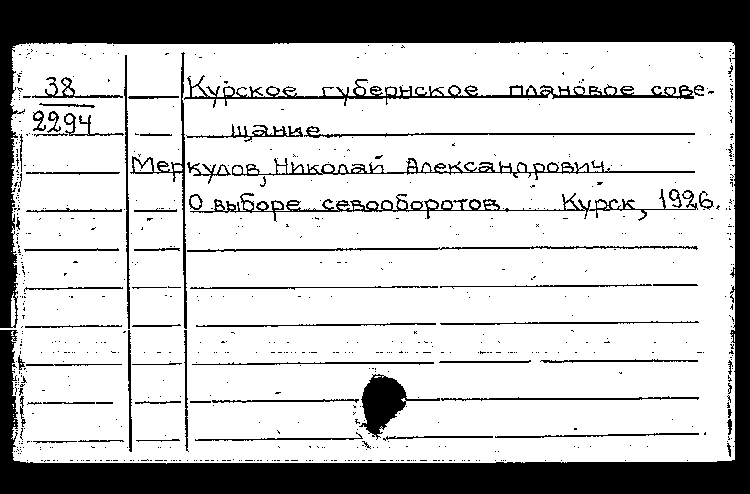 38
2294
Курское губернское плановое сове-
щание
Меркулов, Николай Александрович.
О выборе севооборотов. Курск, 1926.